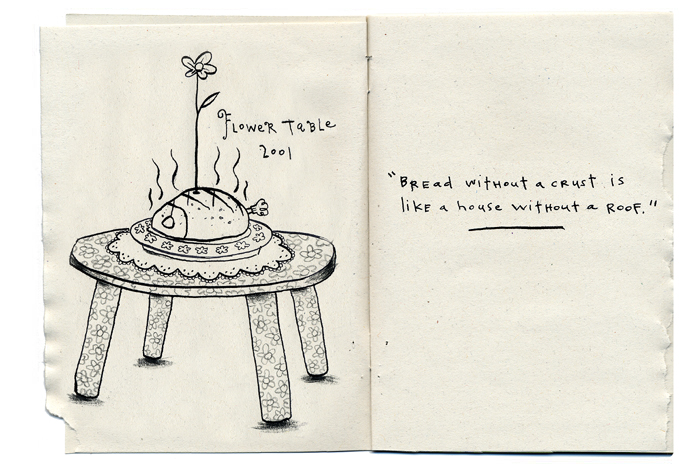 Flower Table
2001
"Bread without a crust is
like a house without a Roof."